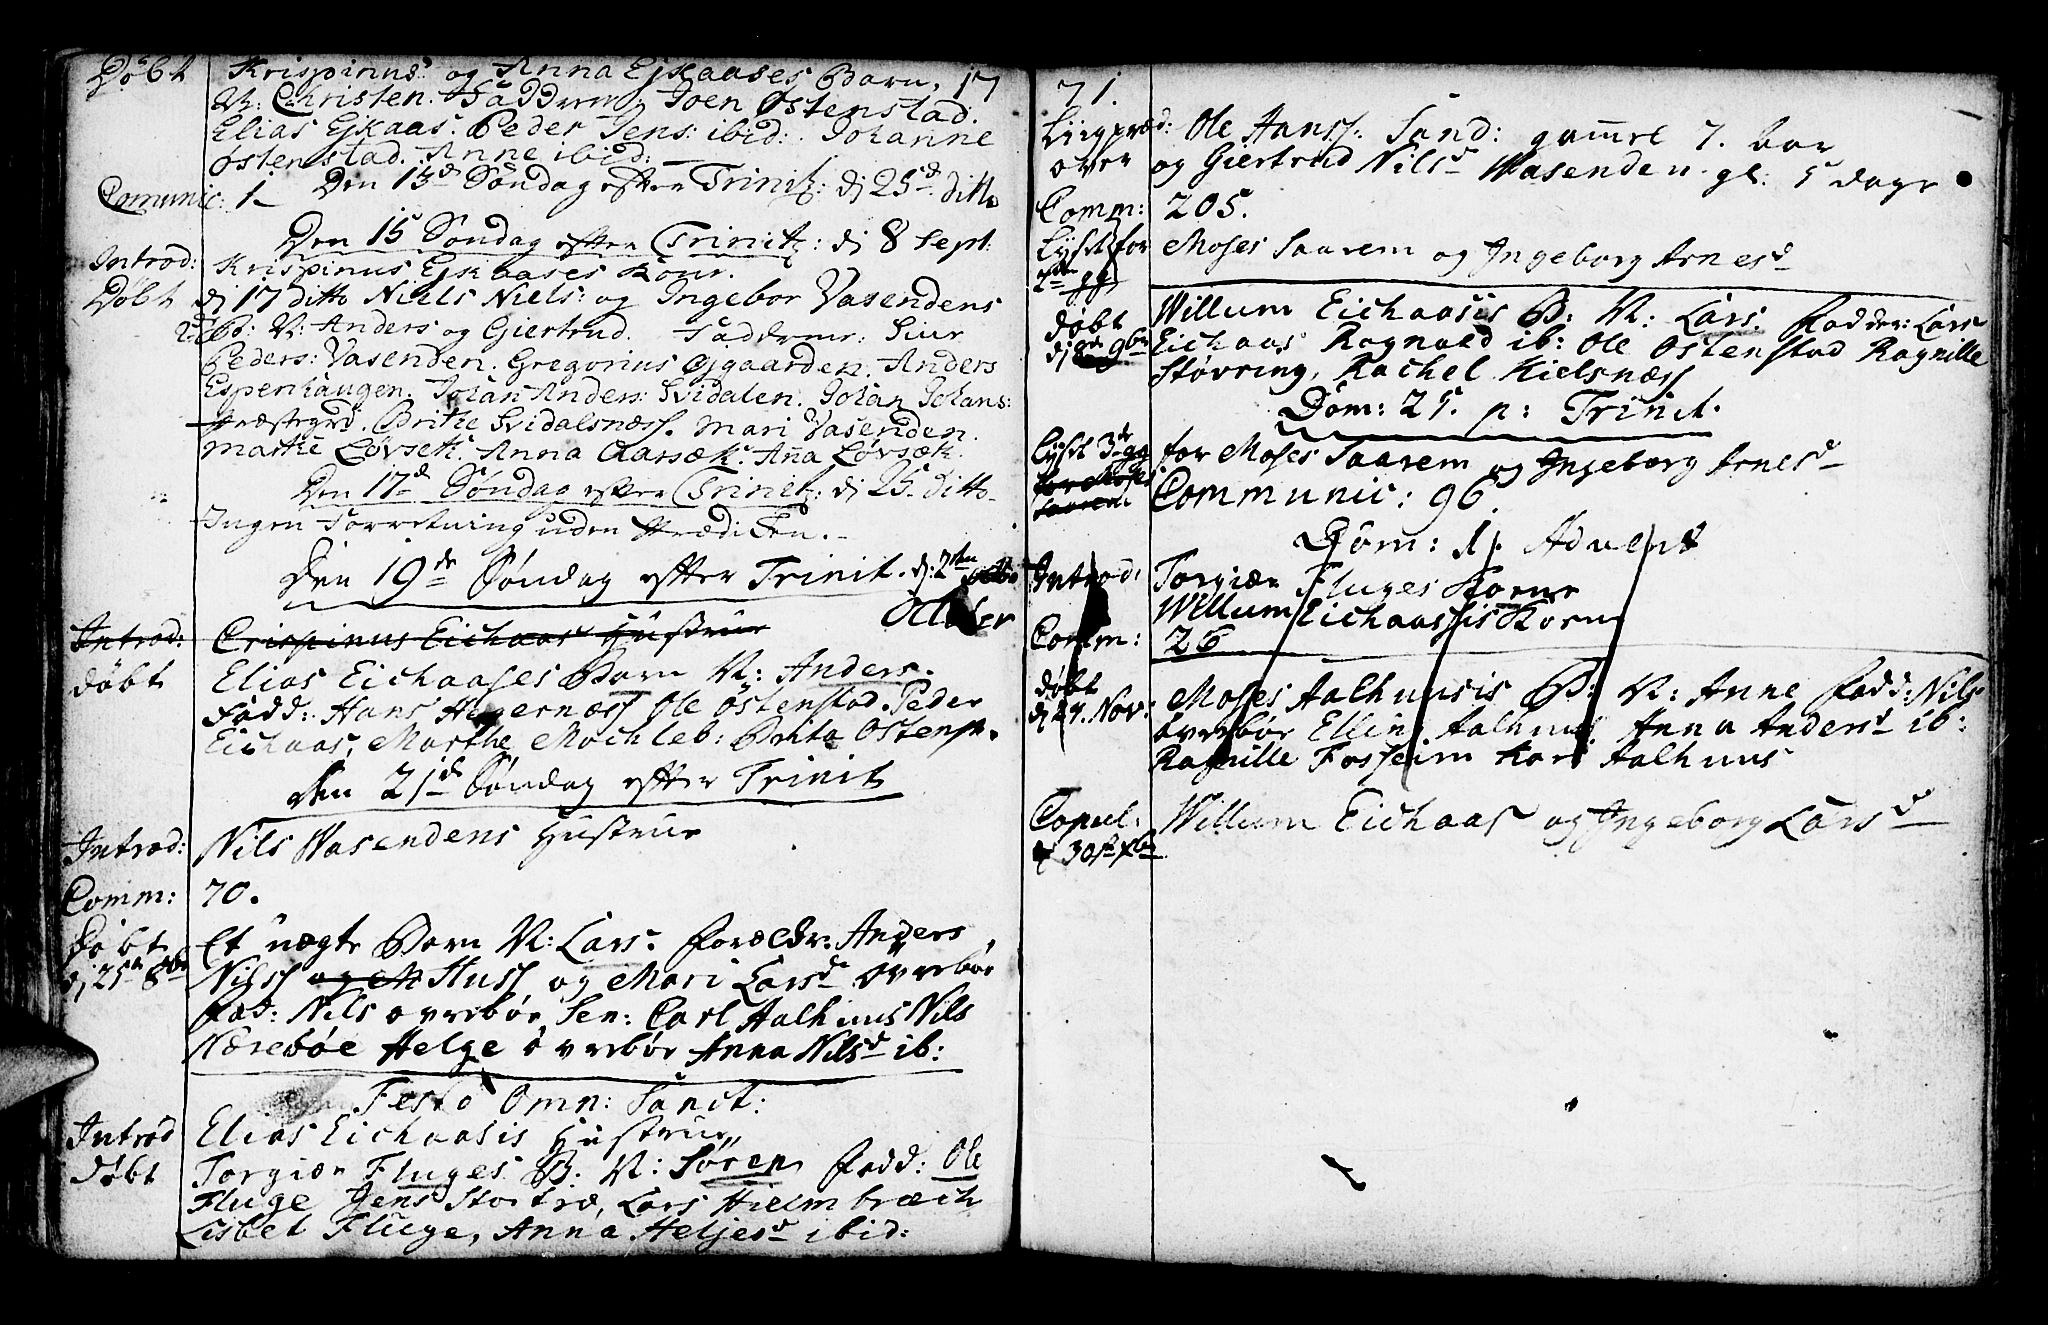 Døbt Krispinus og Anna Ejkaases Barn, 17
N: Christen. Faddrene: Joen Østenstad.
Elias Ejkaas. Peder Jens: ibid: Johanne
Østenstad. Anne ibid:
Comunic: 1. Den 13de Søndag efter Trinit: dj 25de ditto
Den 15 Søndag efter Trinit: dj 8 Sept:
Introd: Krispinus Ejkaases Kone.
Døbt dj 17 ditto Niels Niels: og Ingebor Vasendens
B: N: Anders og Giertrud. Fadderne: Siur
Peders: Vasenden. Gregorius Øygaarden. Anders
Espenhaugen. Johan Anders: Svidalen. Johan Johans:
Præstegrd. Brithe Svidalsnæss. Mari Vasenden.
Marthe Løvsæk. Anna Aarsæk. Aña Løvsæk.
Den 17de Søndag efter Trinit: dj 25 ditto
Ingen Forretning uden Prædiken.
Den 19de Søndag efter Trinit. d: 2den
October
Introd: Crispinus Eichaas Hustrue
døbt Elias Eichaases Barn N: Anders.
Fadd: Hans Ole Østenstad. Peder
Eichaas, Marthe Mochleb: Brita Ostenst.
den 21de Søndag efter Trinit
Introd: Nils Wasendens Hustrue
Comm: 70.
Døbt Et uægte Barn N: Lars. Forældr: Anders
dj 25de 8br Nilss og M Huss og Mari Larsd Øvrebøe
Fad: Nils øvrebøe, Sen: Carl Aalhuus Nils
Nærebøe Helge øvrebøe Anna Nilsd ib:
Festo Omn: Sanct:
Introd Elias Eichaasis Hustrue,,
døbt Torgier Fluges B. N: Søren Fadd: Ole
Fluge Jens Stortræ, Lars Hielmbræch
Lisbet Fluge, Anna Heljesd ibid:
71.
Liigpræd: Ole Hanss: Sand: gammel 7. Aar
over og Giertrud Nilsd Wasenden. gl: 5 dage
Comm: 205.
Lyst for Moses Saarem og Ingeborg Arnesd
2den gg
døbt Willum Eichaasis B: N: Lars. Fadder: Lars
dj 8de 9br Eichaas Ragnald ib: Ole Ostenstad Ragnille
Støvring, Rachel Kielsnæss
Dom: 25. p: Trinit.
Lyst 3de gg for Moses Saarem og Ingeborg Arnesd
for Moses
Saarem
Communic: 96
Dom: 1. Advent
Introd: Torgier Fluges Kone
Willum Eichaassis Kone
Comm: 26
døbt Moses Aalhuusis B: N: Anne Fadd: Nils
d 24. Nov: øvrebøe Ellin Aalhuus Anna Andersd ib:
Ragnille Fosheim Kari Aalhuus
Copul: Willum Eichaas og Ingeborg Larsd
30